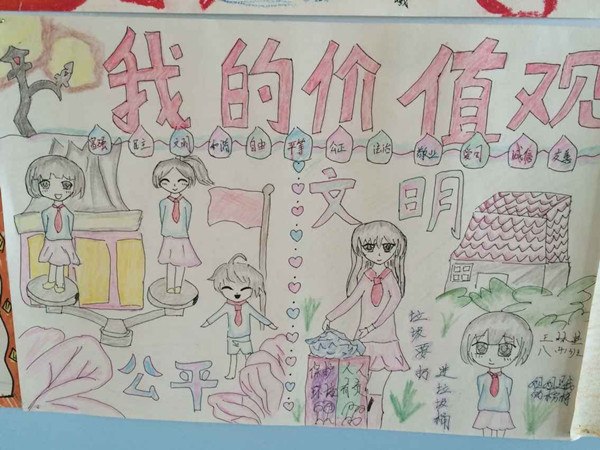 我的价值观
富强 民主 文明 和谐 自由 平等 公正 法治 敬业 爱国 诚信 友善
文明
公平
垃圾要扔
进垃圾桶
保护 人人
环境 有责